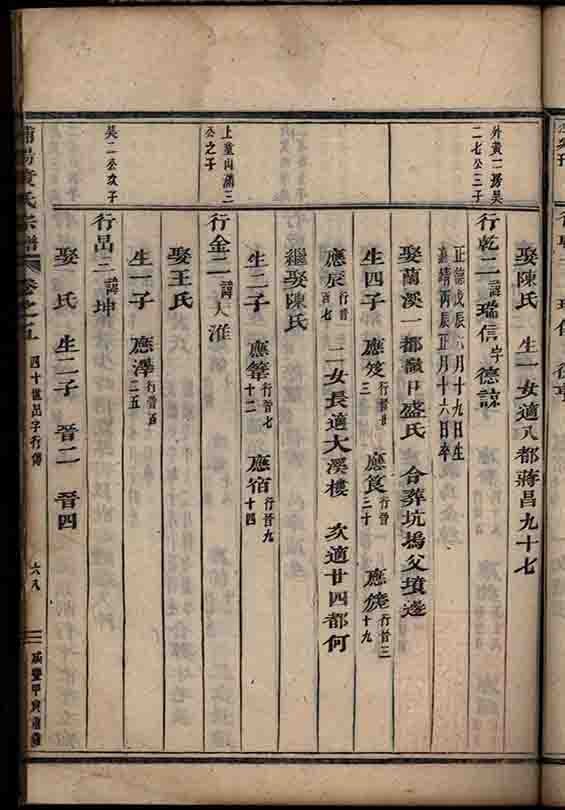 外黄二房吴
二七公三子
上黄山滿三
公之子
吴二公次子
娶陳氏 生一女適八都蔣昌九十七
行乾二 諱瑞信 字德諒
正德戊辰六月十九日生
嘉靖丙辰正月十六日卒
娶蘭溪一都嶺口盛氏 合葬坑塢父墳邊
生四子 應笈 行晋廿三 應笺 行晋三十 應箎 行晋三十九
應辰 行晋百七 二女長適大溪樓 次適廿四都何
繼娶陳氏
生二子 應簟 行晋七十二 應宿 行晋九十四
行金二 諱大淮
娶王氏
生一子 應澤 行晋五二五
行昌三 諱坤
娶 氏 生二子 晋二 晋四
浦陽黄氏宗譜 卷之五 四十世昌字行傳 六八 咸豐甲寅重鐫